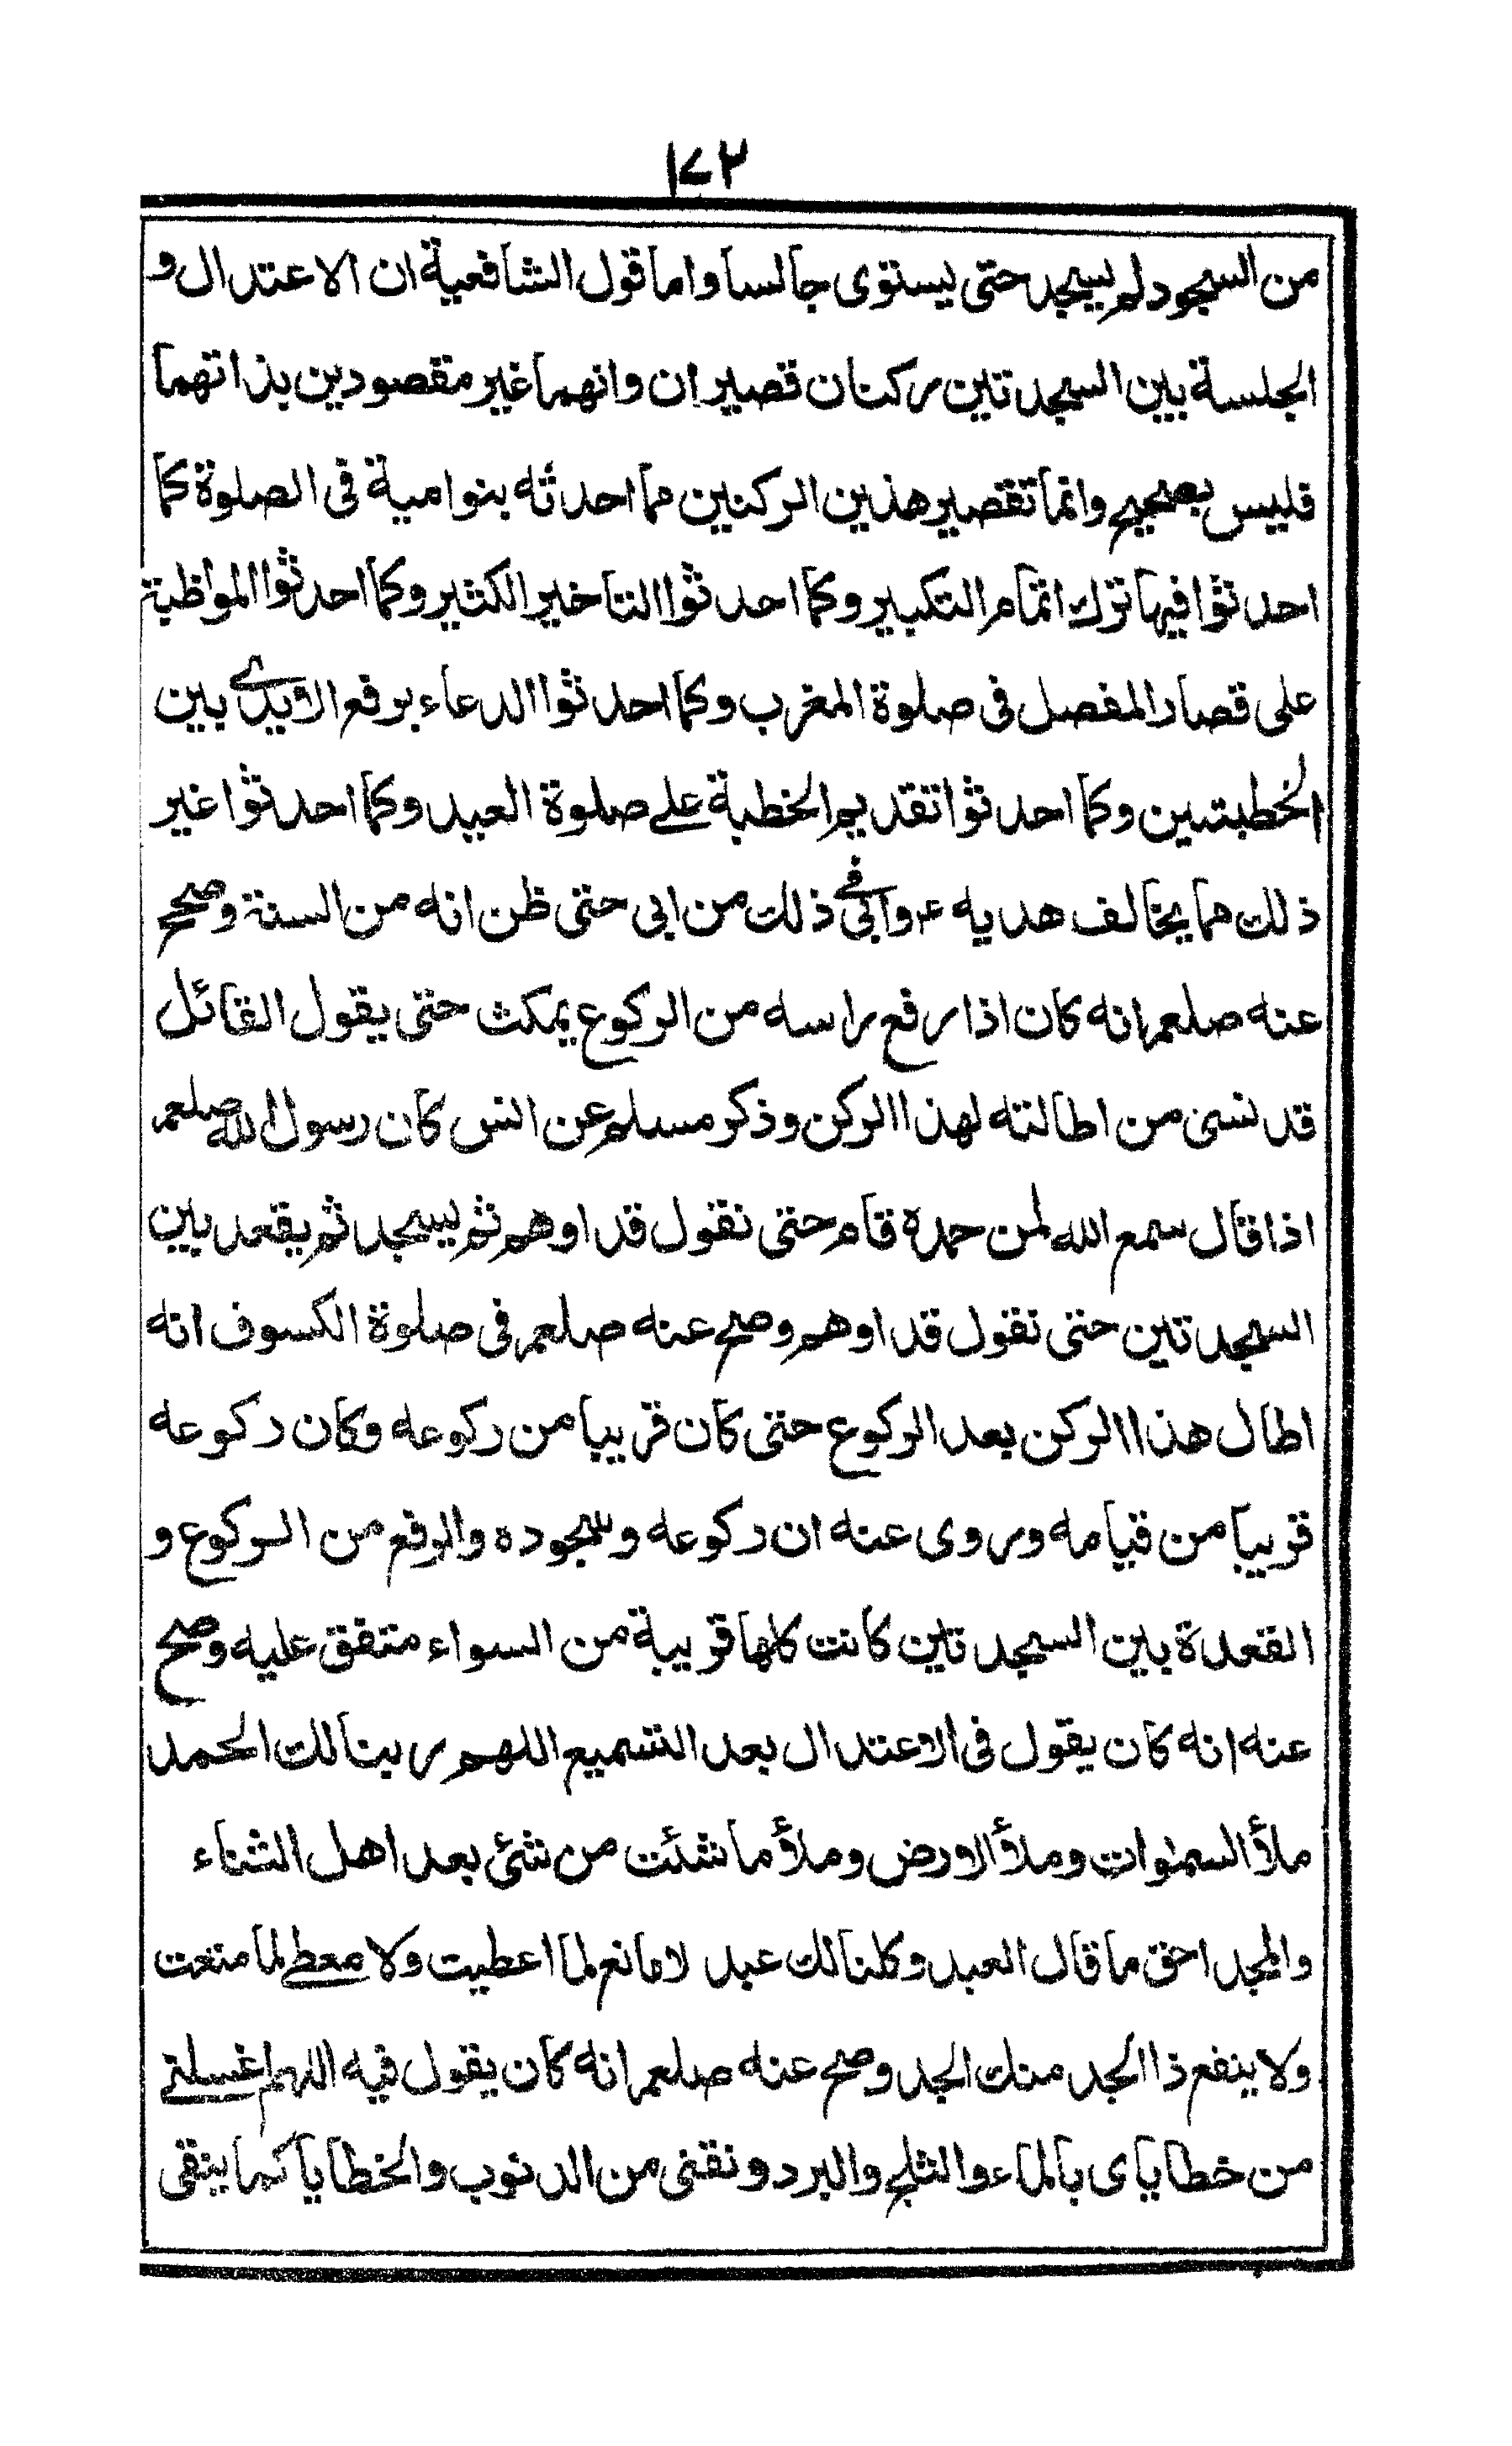 ١٧٢
من السجود لم يسجد حتى يستوى جالسا واما قول الشافعية ان الاعتدال و
الجلسة بين السجدتين ركنان قصيران وانهما غير مقصودين بذاتهما
فليس بصحيح وانما تقصير هذين الركنين مما احدثه بنوامية فى الصلوة كما
احدثوا فيها ترك اتمام التكبير وكما احدثوا التاخير الكثير وكما احدثوا المواظبة
على قصار المفصل فى صلوة المغرب وكما احدثوا الدعاء برفع الايدى بين
الخطبتين وكما احدثوا تقديم الخطبة على صلوة العيد وكما احدثوا غير
ذلك مما يخالف هديه ء وآبى فى ذلك من ابى حتى ظن انه من السنة وصح
عنه صلعم انه كان اذا رفع راسه من الركوع يمكث حتى يقول القائل
قد نسى من اطالته لهذا الركن وذكر مسلم عن انس كان رسول الله صلعم
اذا قال سمع الله لمن حمده قام حتى نقول قد اوهم ثم يسجد ثم يقعد بين
السجدتين حتى نقول قد اوهم وصح عنه صلعم فى صلوة الكسوف انه
اطال هذا الركن بعد الركوع حتى كان قريبا من ركوعه وكان ركوعه
قريبا من قيامه وروى عنه ان ركوعه وسجوده والرفع من الركوع و
القعدة بين السجدتين كانت كلها قريبة من السواء متفق عليه وصح
عنه انه كان يقول فى الاعتدال بعد التسميع اللهم ربنا لك الحمد
ملأ السموات وملأ الارض وملأ ما شئت من شئ بعد اهل الثناء
والمجد احق ما قال العبد وكلنا لك عبد لا مانع لما اعطيت ولا معطى لما منعت
ولا ينفع ذا الجد منك الجد وصح عنه صلعم انه كان يقول فيه اللهم اغسلنى
من خطاياى بالماء والثلج والبرد ونقنى من الذنوب والخطايا كما ينقى